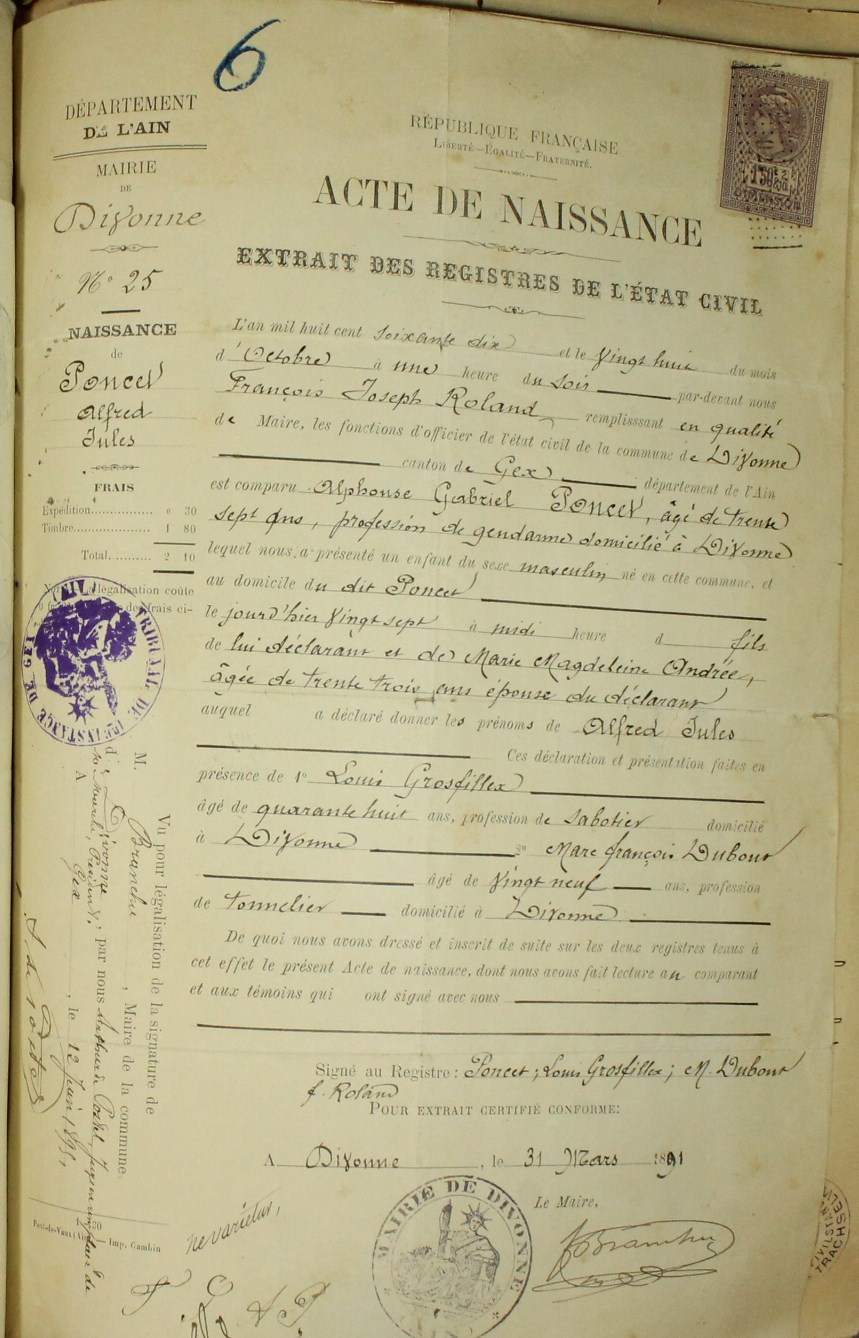 6
DÉPARTEMENT
DE L'AIN
MAIRIE
DE
Divonne
N° 25
NAISSANCE
de
Poncet
Alfred
Jules
FRAIS
Expédition................ » 30
Timbre.................... 1 80
Total.......... 2 10
RÉPUBLIQUE FRANÇAISE
LIBERTÉ—ÉGALITÉ—FRATERNITÉ.
ACTE DE NAISSANCE
EXTRAIT DES REGISTRES DE L'ÉTAT CIVIL
L'an mil huit cent soixante dix et le vingt huit du mois
d'Octobre à une heure du soir par-devant nous
François Joseph Roland remplisssant en qualité
de Maire, les fonctions d'officier de l'état civil de la commune de Divonne
canton de Gex département de l'Ain
est comparu Alphonse Gabriel Poncet, âgé de trente
sept ans, profession de gendarme domicilié à Divonne
lequel nous a présenté un enfant du sexe masculin né en cette commune, et
au domicile du dit Poncet
le jourd'hier vingt sept à midi heure d fils
de lui déclarant et de Marie Magdeleine Andrée,
âgée de trente trois ans épouse du déclarant
auquel a déclaré donner les prénoms de Alfred Jules
Ces déclaration et présentation faites en
présence de 1° Louis Grosfillex
âgé de quarante huit ans, profession de sabotier domicilié
à Divonne 2° Marc François Dubout
âgé de vingt neuf ans, profession
de tonnelier domicilié à Divonne
De quoi nous avons dressé et inscrit de suite sur les deux registres tenus à
cet effet le présent Acte de naissance, dont nous avons fait lecture au comparant
et aux témoins qui ont signé avec nous
Signé au Registre: Poncet; Louis Grosfillex; M. Dubout
f. Roland
POUR EXTRAIT CERTIFIÉ CONFORME:
A Divonne, le 31 Mars 1891
Le Maire,
MAIRIE DE DIVONNE
TRIBUNAL DE 1re INSTANCE DE GEX
Vu pour légalisation de la signature de
M. Branchu, Maire de la commune
d Divonne, par nous
A Gex, le 12 Juin 1891,
ne varietur,
Imp. Gambin